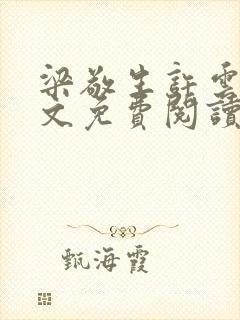 梁敬生許雲
文免費閱讀
甄海霞